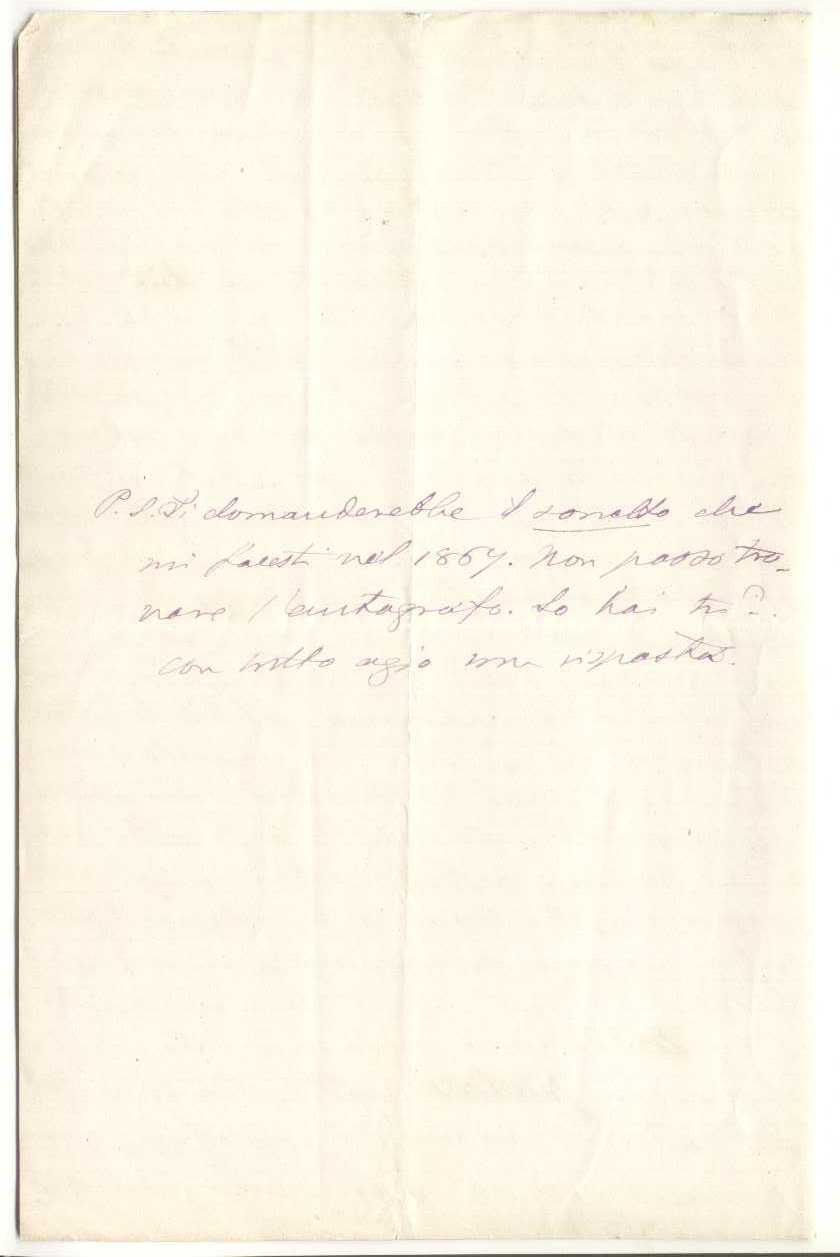 P.S. Ti domanderebbe il sonetto che
mi facesti nel 1867. Non posso tro-
vare l'autografo. Lo hai tu?
con tutto agio una risposta.